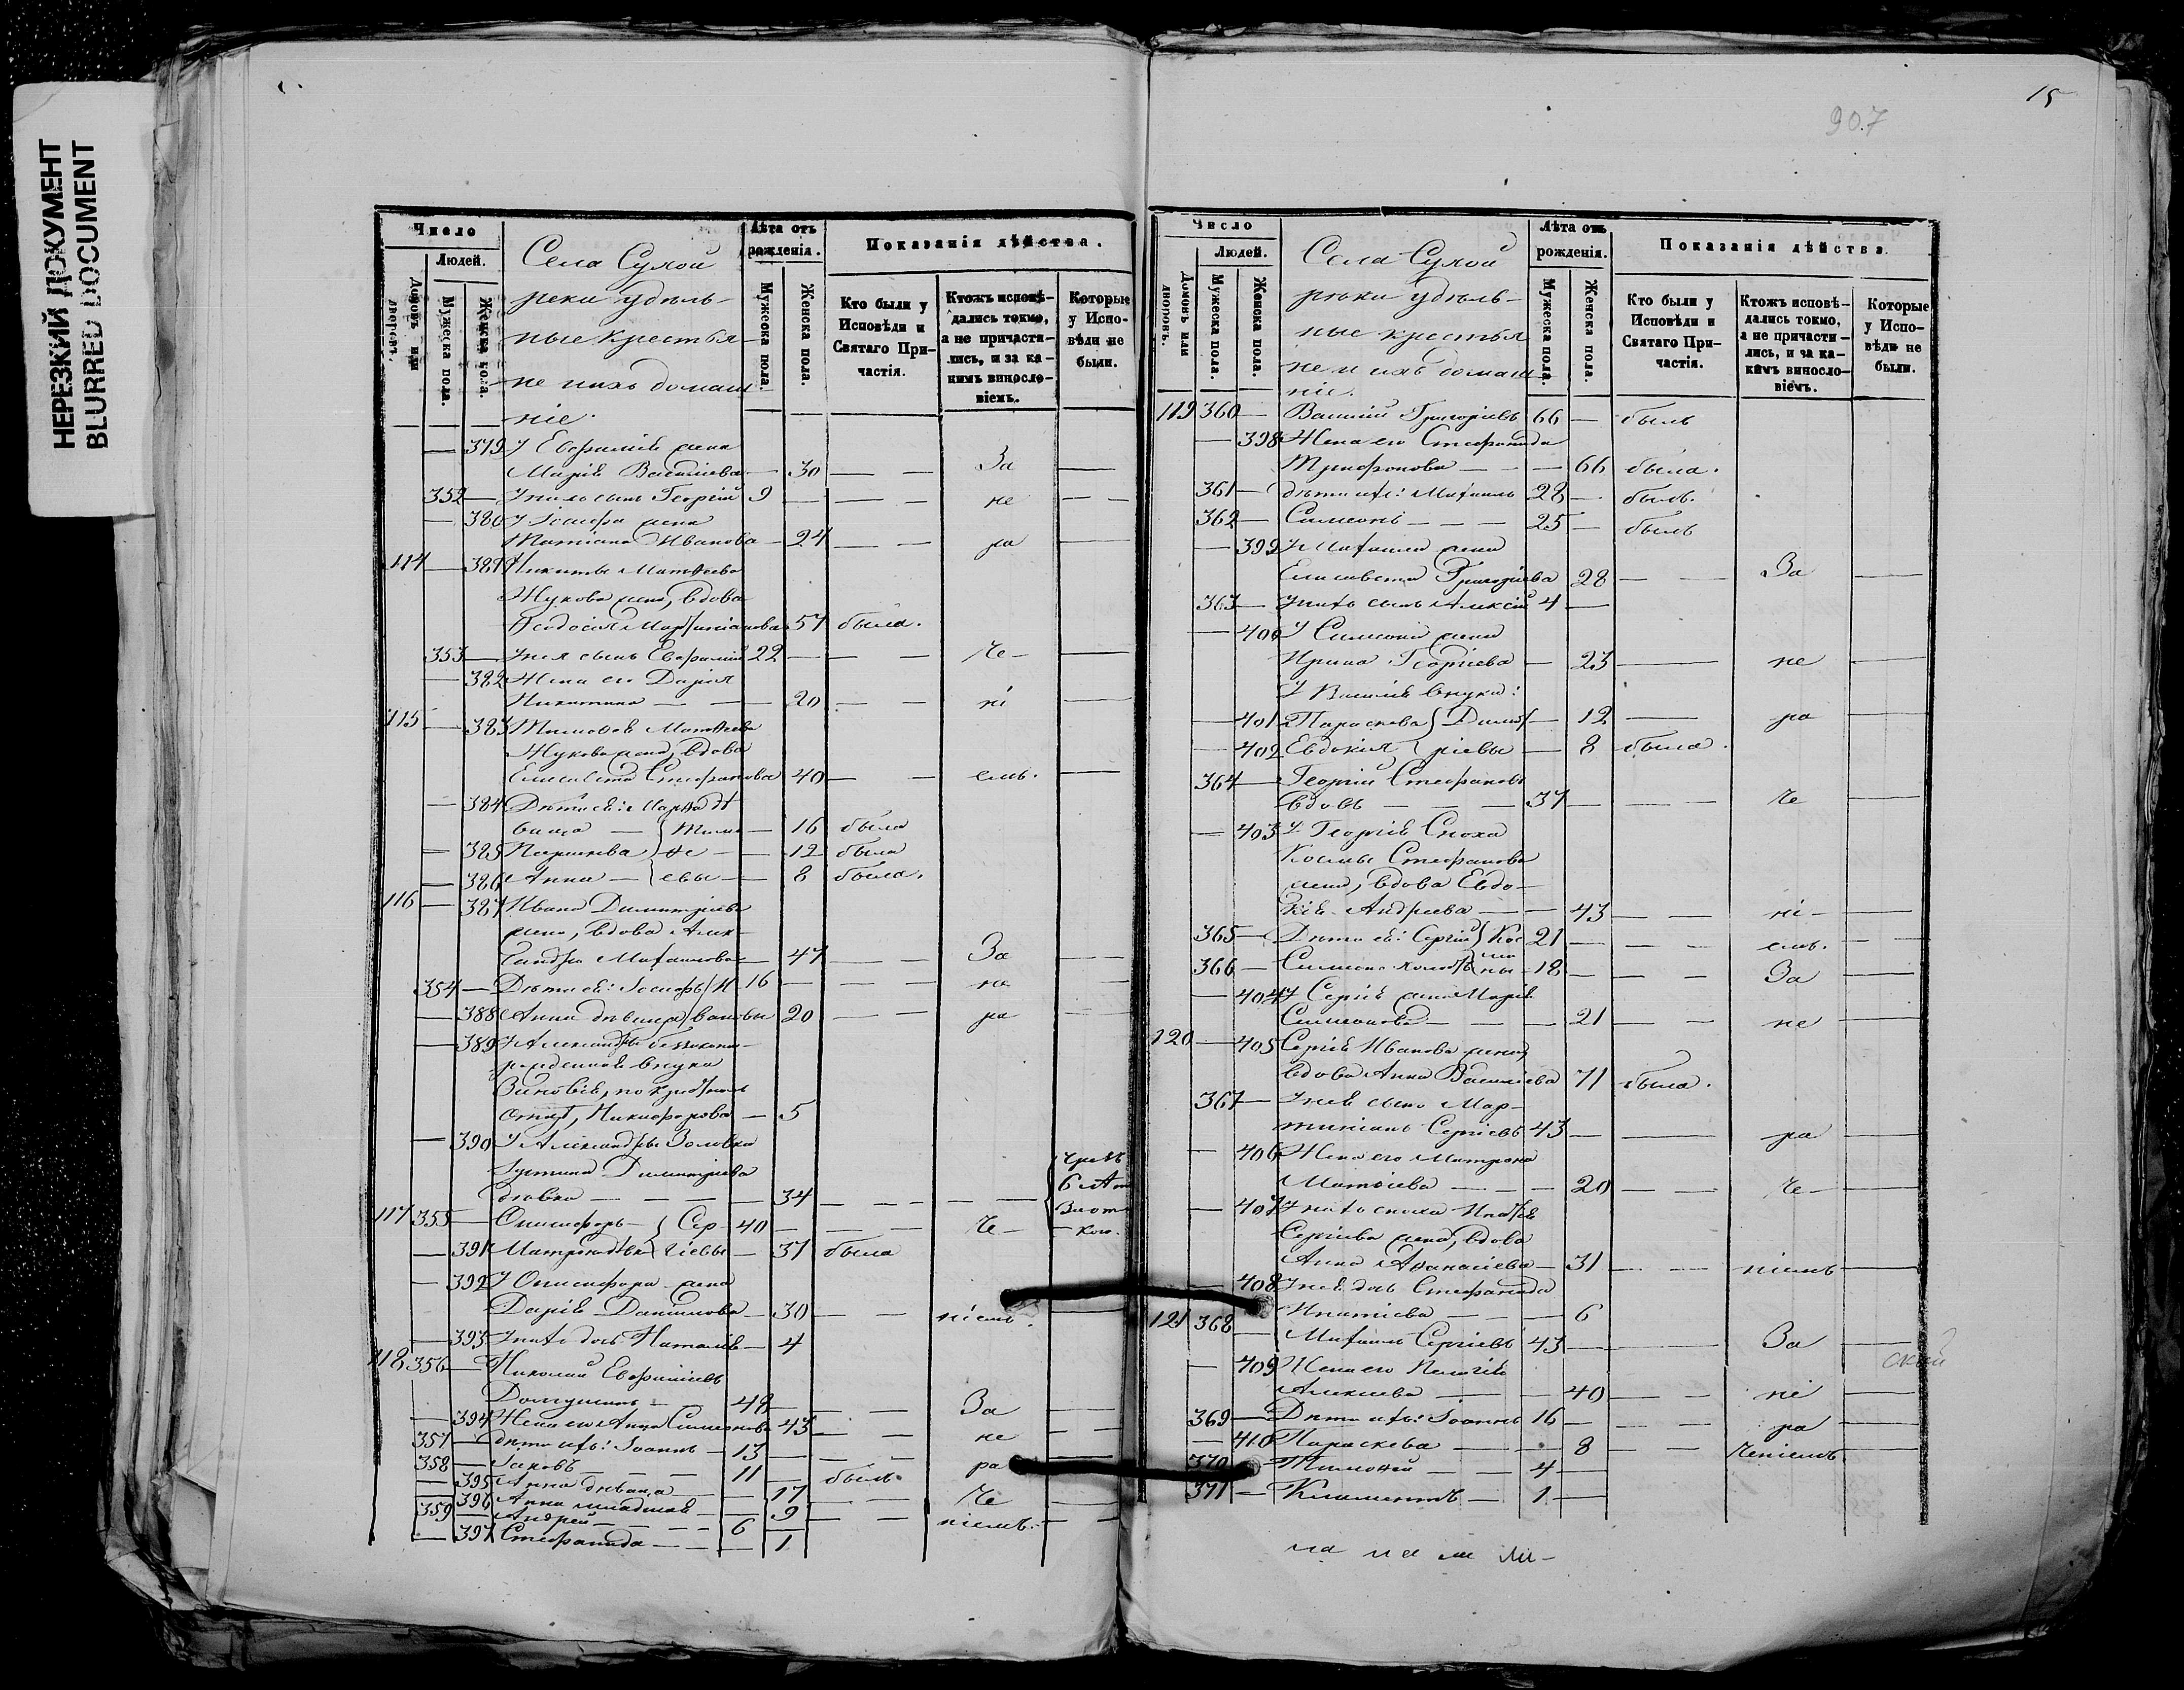 НЕРЕЗКИЙ ДОКУМЕНТ
BLURRED DOCUMENT
Число
Людей.
Домовъ или дворовъ.
Мужеска пола.
Женска пола.
Села Сухой
реки удѣль-
ные крестья-
не и ихъ домаш-
ніе.
Лѣта отъ рожденія.
Мужеска пола.
Женска пола.
Показанія дѣйства.
Кто были у Исповѣди и Святаго При-частія.
Ктожъ исповѣ-дались токмо, а не причасти-лись, и за ка-кимъ винословіемъ.
Которые у Испо-вѣди не были.
379 У Евфимія жена
Марія Василіева 30 За
352 У нихъ сынъ Георгій 9 не
380 У Іосифа жена
Татіана Иванова 24 ра
114 381 Никиты Матѳеева
Жукова жена, вдова
Ѳеодосія Мартиніанова 57 была.
353 У нея сынъ Евфимій 22 че
382 Жена его Дарія
Никитина 20 ні
115 383 Тимоѳея Матѳеева
Жукова жена, вдова
Елисавета Стефанова 40 емъ.
384 Дѣти ея: Марѳа дѣ
вица Тимо 16 была
385 Параскева ѳе 12 была
386 Анна евы 8 была.
116 387 Ивана Димитріева
жена, вдова Алек-
сандра Михаилова 47 За
354 Дѣти ея: Іосифъ И 16 не
388 Анна дѣвица вановы 20 ра
389 У Александры беззаконно-
рожденная внука
Зиновія, по крестном
отцѣ, Никифорова 5
390 У Александры Золовка
Іустина Димитріева
дѣвка 34
117 355 Онисифоръ Сер 40 Че
391 Матрона дѣвка гіевы 37 была
392 У Онисифора жена
Дарія Данилова 30 ніемъ.
393 У нихъ дочь Наталія 4
118 356 Николай Евфиміевъ
48 За
394 Жена его Анна Симеонова 43 не
357 Дѣти ихъ: Іоаннъ 13 ра
358 Іаковъ 11 былъ.
395 Анна дѣвица 17 Че
396 Анна младшая 9 ніемъ.
359 Андрей 6
397 Стефанида 1
15
907
Число
Людей.
Домовъ или дворовъ.
Мужеска пола.
Женска пола.
Села Сухой
рѣки удѣль-
ные крестья
не и ихъ домаш-
ніе.
Лѣта отъ рожденія.
Мужеска пола.
Женска пола.
Показанія дѣйства.
Кто были у Исповѣди и Святаго При-частія.
Ктожъ исповѣ-дались токмо, а не причасти-лись, и за ка-кимъ винословіемъ.
Которые у Испо-вѣди не были.
119 360 Василій Григоріевъ 66 былъ
398 Жена его Стефанида
Трифонова 66 была.
361 Дѣти ихъ: Михаилъ 28 былъ.
362 Симеонъ 25 былъ
399 У Михаила жена
Елисавета Григоріева 28 За
363 У нихъ сынъ Алексій 4
400 У Симеона жена
Ирина Георгіева 23 не
У Василія внуки:
401 Параскева Димит 12 ра
402 Евдокія ріевы 8 была.
364 Георгій Стефановъ
вдовъ 37 Че
403 У Георгія Сноха
Космы Стефанова
жена, вдова Евдо-
кія Андреева 43 ні
365 Дѣти ея: Сергій Кос 21 емъ.
366 Симеонъ холостъ мины 18 За
404 У Сергія жена Марія
Симеонова 21 не
120 405 Сергія Иванова жена,
вдова Анна Василіева 71 была.
367 У нея сынъ Мар-
тиніанъ Сергіевъ 43 ра
406 Жена его Матрона
Матѳіева 20 Че
407 У нихъ сноха Ипатія
Сергіева жена, вдова
Анна Аѳанасіева 31 ніемъ
408 У нея дочь Стефанида
Ипатіева 6
121 368 Михаилъ Сергіевъ 43 За
409 Жена его Пелагія
Алексіева 40 не
369 Дѣти ихъ: Іоаннъ 16 ра
410 Параскева 8 Ченіемъ
370 Тимоѳей 4
371 Климентъ 1